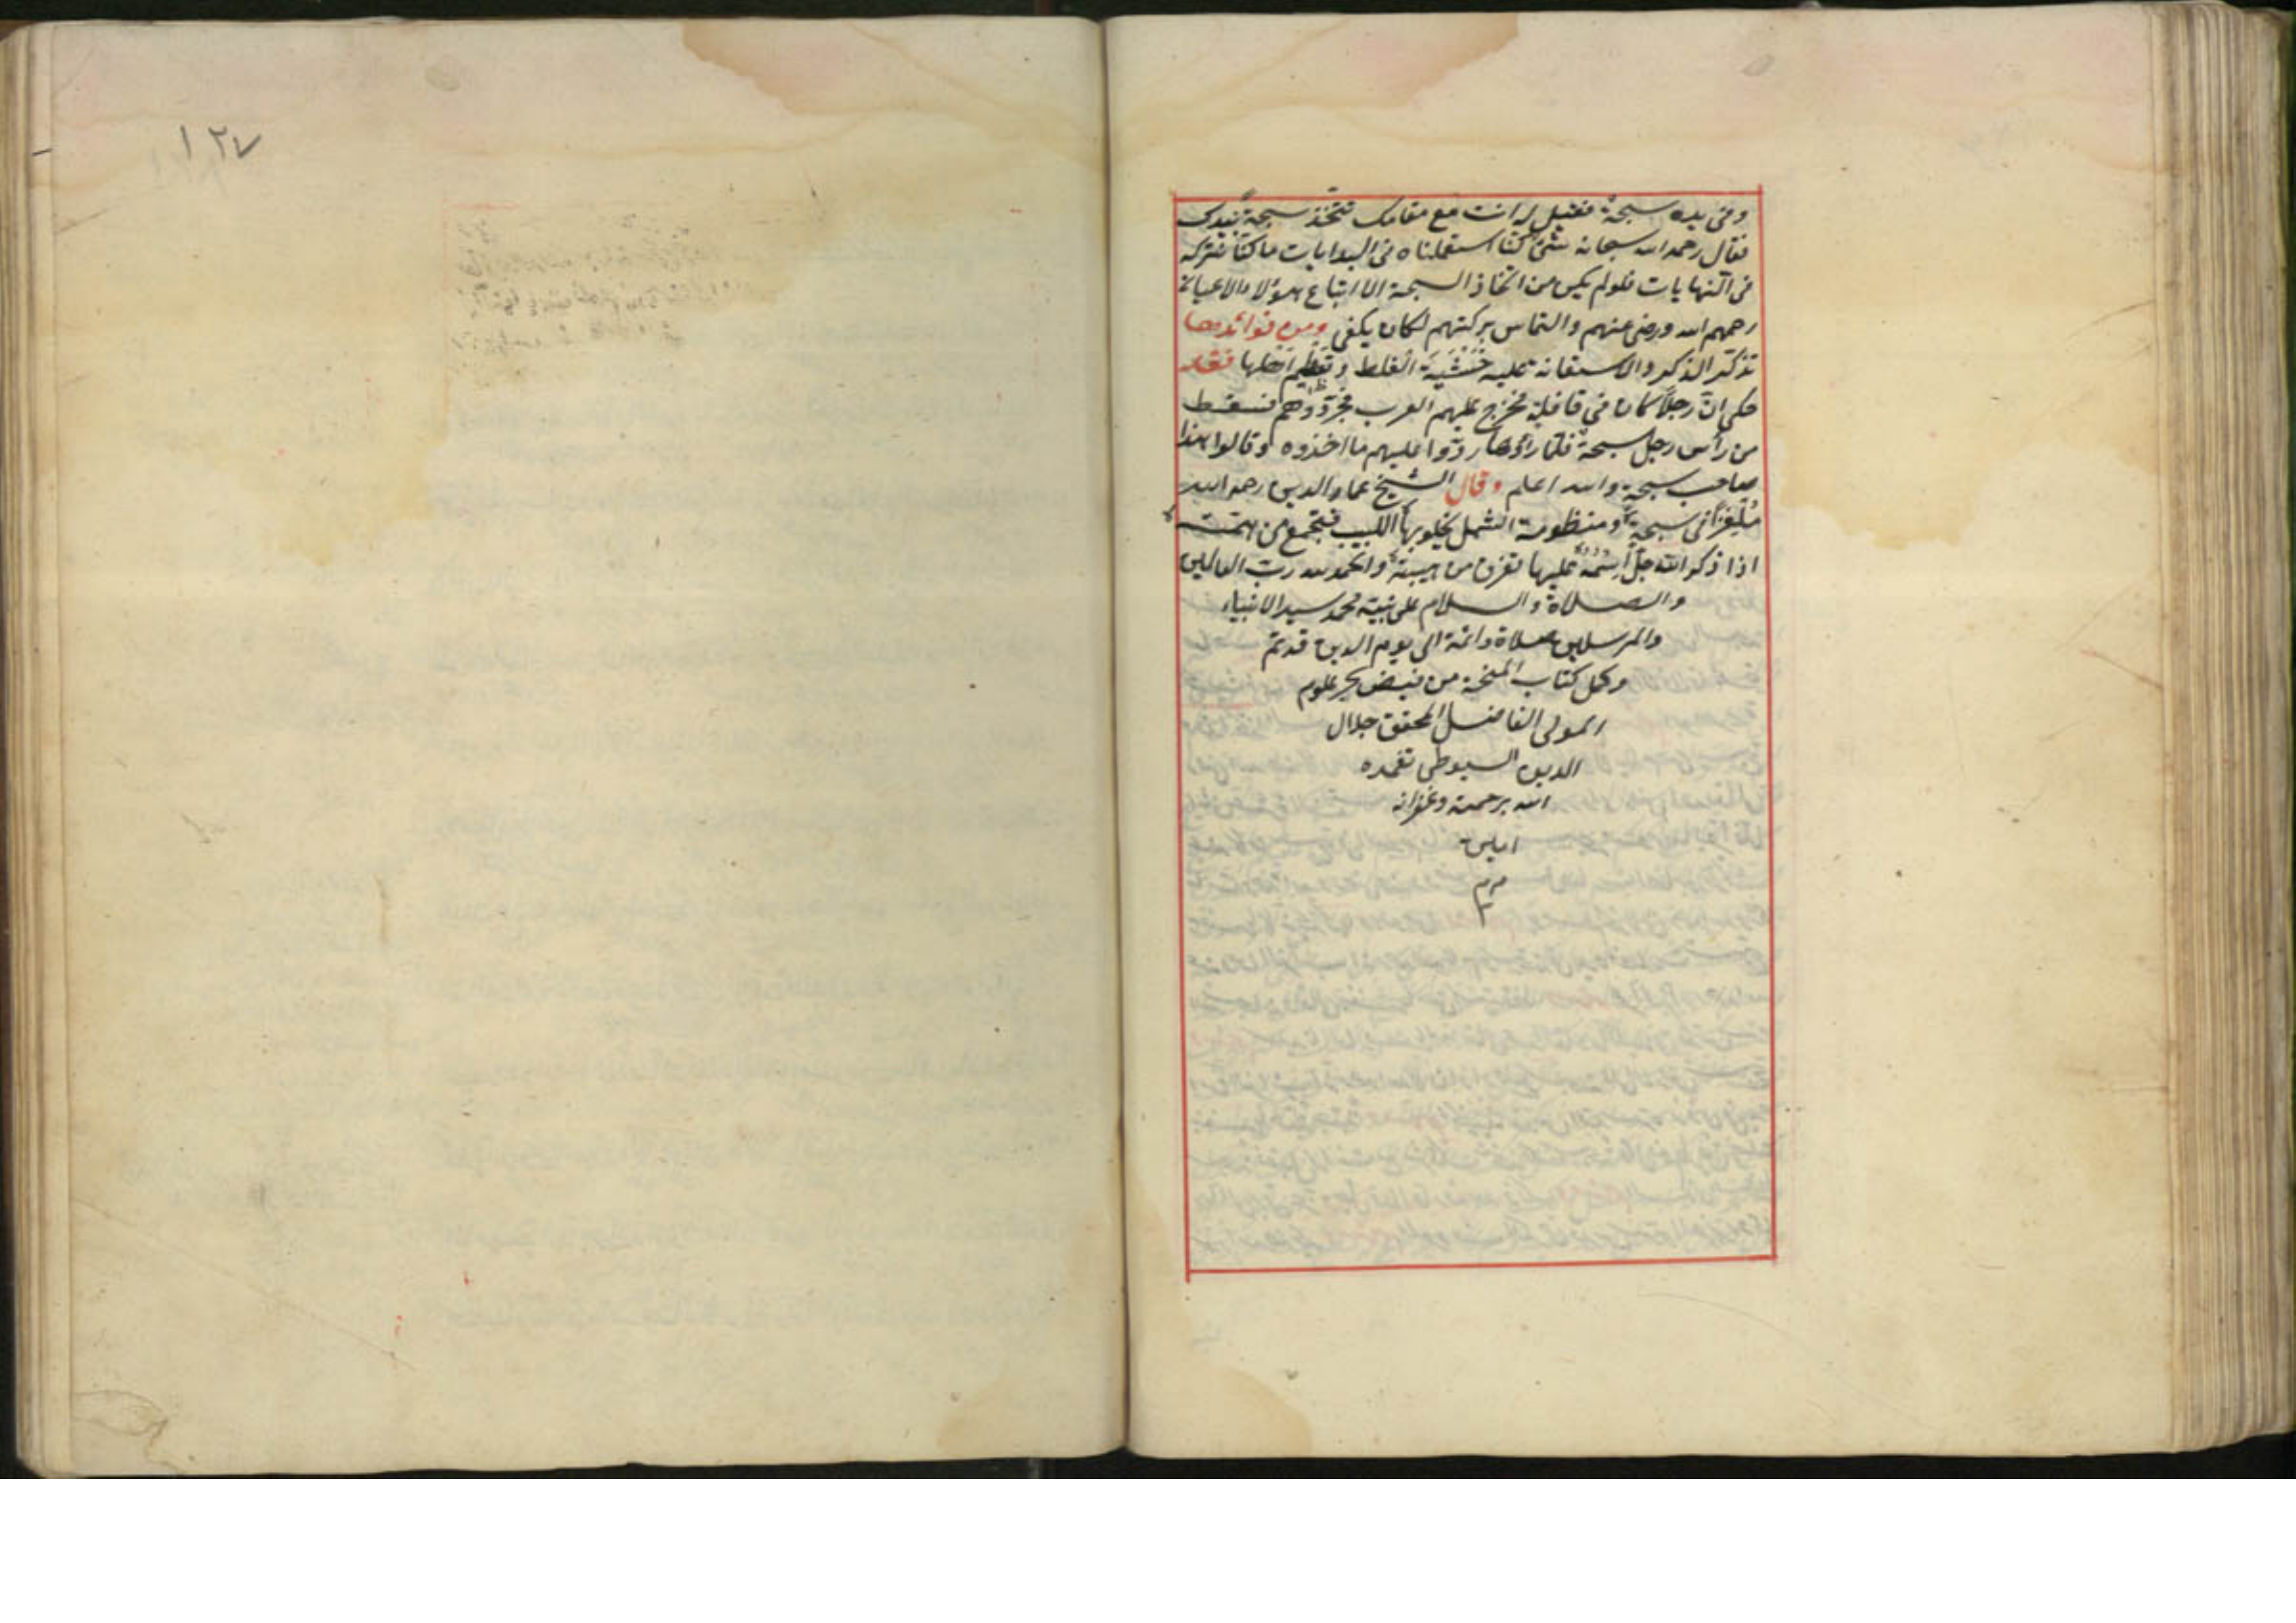 وفى يده سبحة فقيل له انت مع مقامك تتخذ سبحة بيدك
فقال رحمه الله سبحانه شئ كنا استعملناه فى البدايات ما كنا نتركه
فى النهايات فلو لم يكن من اتخاذ السبحة الا اتباع هؤلاء الاعيان
رحمهم الله ورضى عنهم والتماس بركتهم لكان يكفى ومن فوائدها
تذكر الذكر والاستعانة عليه خشية الغلط وتعظيم فقد
حكى ان رجلا كان فى قافلة فخرج عليهم العرب فجردوهم فسقط
من رأس رجل سبحة فلما رأوها ردوا عليهم ما اخذوه وقالوا هذا
صاحب سبحة والله اعلم وقال الشيخ عماد الدين رحمه الله
ملغزا فى سبحة ومنظومة الشمل يخلو بها اللبيب فتجمع من همته
اذا ذكر الله جل اسمه عليها تفرق من هيبته والحمد لله رب العالمين
والصلاة والسلام على نبيه محمد سيد الانبياء
والمرسلين صلاة دائمة الى يوم الدين قد تم
وكمل كتاب المنحة من فيض بحر علوم
المولى الفاضل المحقق جلال
الدين السيوطى تغمده
الله برحمته وغفرانه
امين
م م م
١٢٧